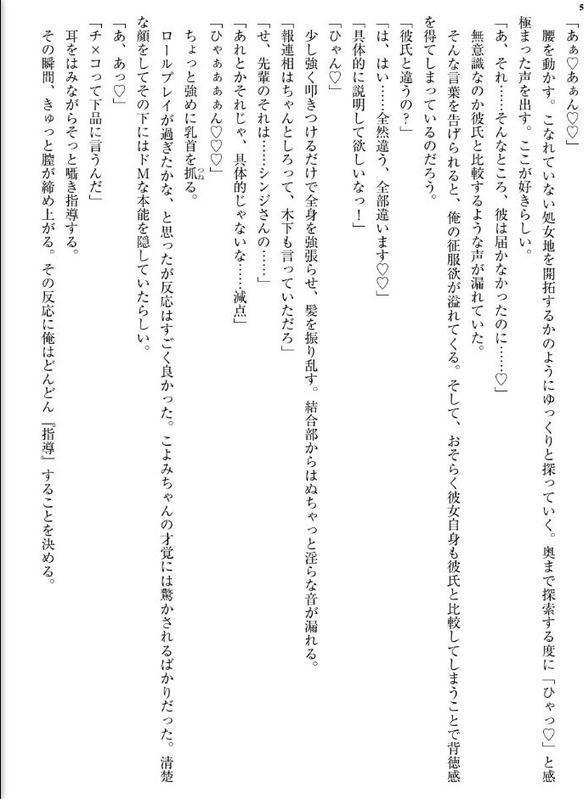 5
「あぁ♡あぁん♡♡」
腰を動かす。こなれていない処女地を開拓するかのようにゆっくりと探っていく。奥まで探索する度に「ひゃっ♡」と感
極まった声を出す。ここが好きらしい。
「あ、それ……そんなところ、彼は届かなかったのに……♡」
無意識なのか彼氏と比較するような声が漏れていた。
そんな言葉を告げられると、俺の征服欲が溢れてくる。そして、おそらく彼女自身も彼氏と比較してしまうことで背徳感
を得てしまっているのだろう。
「彼氏と違うの?」
「は、はい……全然違う、全部違います♡♡」
「具体的に説明して欲しいなっ!」
「ひゃん♡」
少し強く叩きつけるだけで全身を強張らせ、髪を振り乱す。結合部からはぬちゃっと淫らな音が漏れる。
「報連相はちゃんとしろって、木下も言っていただろ」
「せ、先輩のそれは……シンジさんの……」
「あれとかそれじゃ、具体的じゃないな……減点」
「ひゃぁぁぁぁん♡♡♡」
ちょっと強めに乳首を抓る。
つね
ロールプレイが過ぎたかな、と思ったが反応はすごく良かった。こよみちゃんの才覚には驚かされるばかりだった。清楚
な顔をしてその下にはドMな本能を隠していたらしい。
「あ、あっ♡」
「チ×コって下品に言うんだ」
耳をはみながらそっと囁き指導する。
その瞬間、きゅっと膣が締め上がる。その反応に俺はどんどん『指導』することを決める。